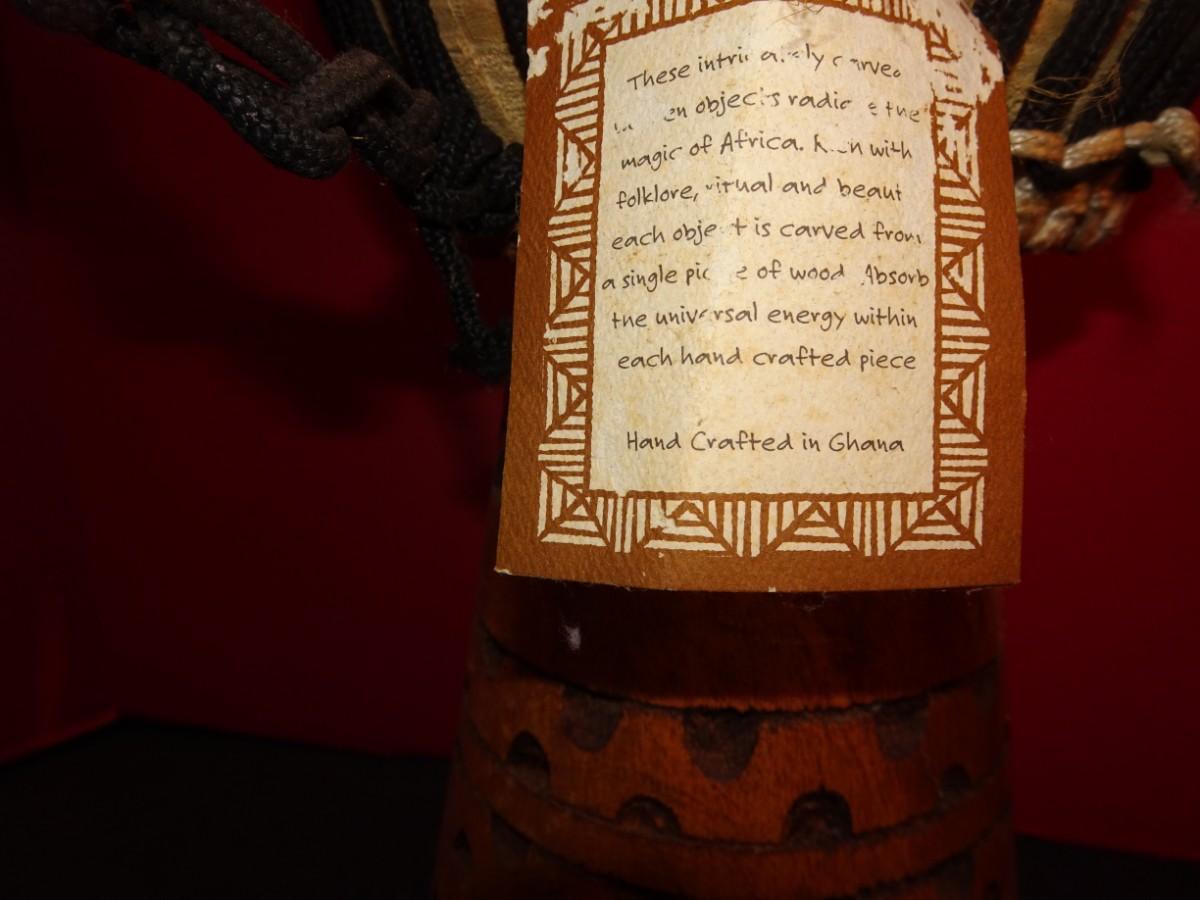 These intricately carved
objects radiate the
magic of Africa. with
folklore, ritual and beauty
each object is carved from
a single piece of wood Absorb
the universal energy within
each hand crafted piece
Hand Crafted in Ghana